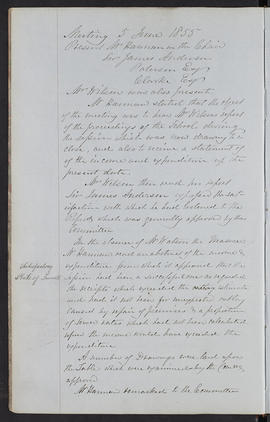 Meeting 5 June 1855
Present Mr Hannan in the Chair
Sir James Anderson
Paterson Esqr
Clarke Esqr
Mr Wilson was also present.
Mr Hannan stated that the object
of the meeting was to hear Mr Wilsons report
of the proceedings of the School during
the session which was now drawing to a
close, and also to receive a statement of
of the income and expenditure up the
present date.
Mr Wilson then read his report
Sir James Anderson expressed the sat-
isfaction with which he had listened to the
Report which was generally approved by the
Committee
In the absence of Mr Watson the Treasurer
Mr Hannan read an abstract of the income &
expenditure from which it appeared that the
session had been a successful one as regarded
the receipts which exceeded the estimate
and had it not been for unexpected outlay
caused by repair of premises & a proportion
of Sewer rates which had not been calculated
upon the income would have exceeded the
expenditure.
Satisfactory
State of funds
A number of Drawings were laid upon
the Table which were examined by the Com. &
approved
Mr Hannan remarked to the Committee